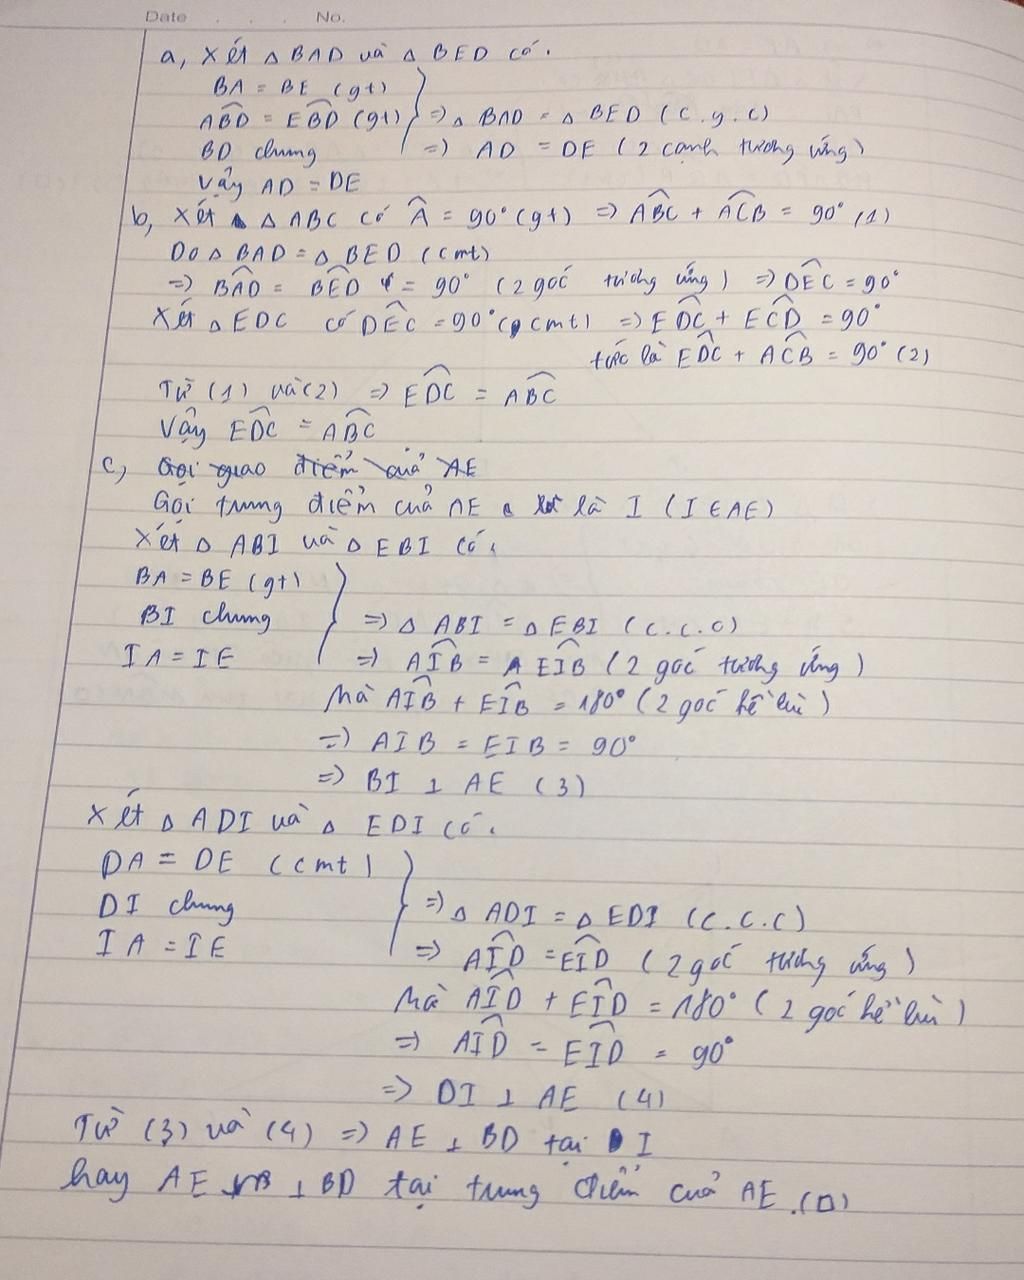 Date . . . No.
a, Xét △ BAD và △ BED có.
BA = BE (gt)
ABD = EBD (gt) => △ BAD = △ BED (c.g.c)
BD chung => AD = DE (2 cạnh tương ứng)
Vậy AD = DE
b, Xét △ ABC có Â = 90° (gt) => ABC + ACB = 90° (1)
Do △ BAD = △ BED (cmt)
=> BAD = BED = 90° (2 góc tương ứng) => DEC = 90°
Xét △ EDC có DEC = 90° (cmt) => EDC + ECD = 90°
tức là EDC + ACB = 90° (2)
Từ (1) và (2) => EDC = ABC
Vậy EDC = ABC
c, Gọi giao điểm của AE
Gọi trung điểm của AE là I (I ∈ AE)
Xét △ ABI và △ EBI có.
BA = BE (gt)
BI chung => △ ABI = △ EBI (c.c.c)
IA = IE => AIB = EIB (2 góc tương ứng)
Mà AIB + EIB = 180° (2 góc kề bù)
=> AIB = EIB = 90°
=> BI ⊥ AE (3)
Xét △ ADI và △ EDI có.
DA = DE (cmt)
DI chung => △ ADI = △ EDI (c.c.c)
IA = IE => AID = EID (2 góc tương ứng)
Mà AID + EID = 180° (2 góc kề bù)
=> AID = EID = 90°
=> DI ⊥ AE (4)
Từ (3) và (4) => AE ⊥ BD tại I
hay AE ⊥ BD tại trung điểm của AE. (□)